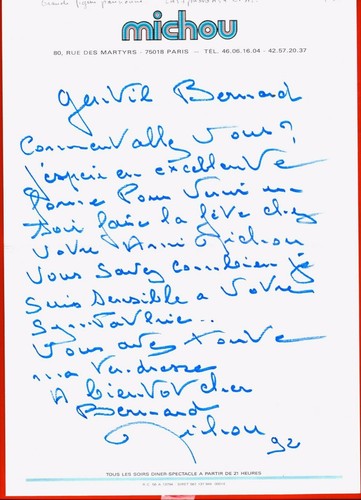 michou
80, RUE DES MARTYRS - 75018 PARIS - TÉL. 46.06.16.04 - 42.57.20.37
Gentil Bernard
Comment allez vous ?
j'espère en excellente
forme pour venir un
soir faire la fête chez
votre Ami Michou
Vous savez combien je
suis sensible a votre
sympathie..
Vous avez toute
ma tendresse
A bientot cher
Bernard
Michou 92
TOUS LES SOIRS DINER-SPECTACLE A PARTIR DE 21 HEURES